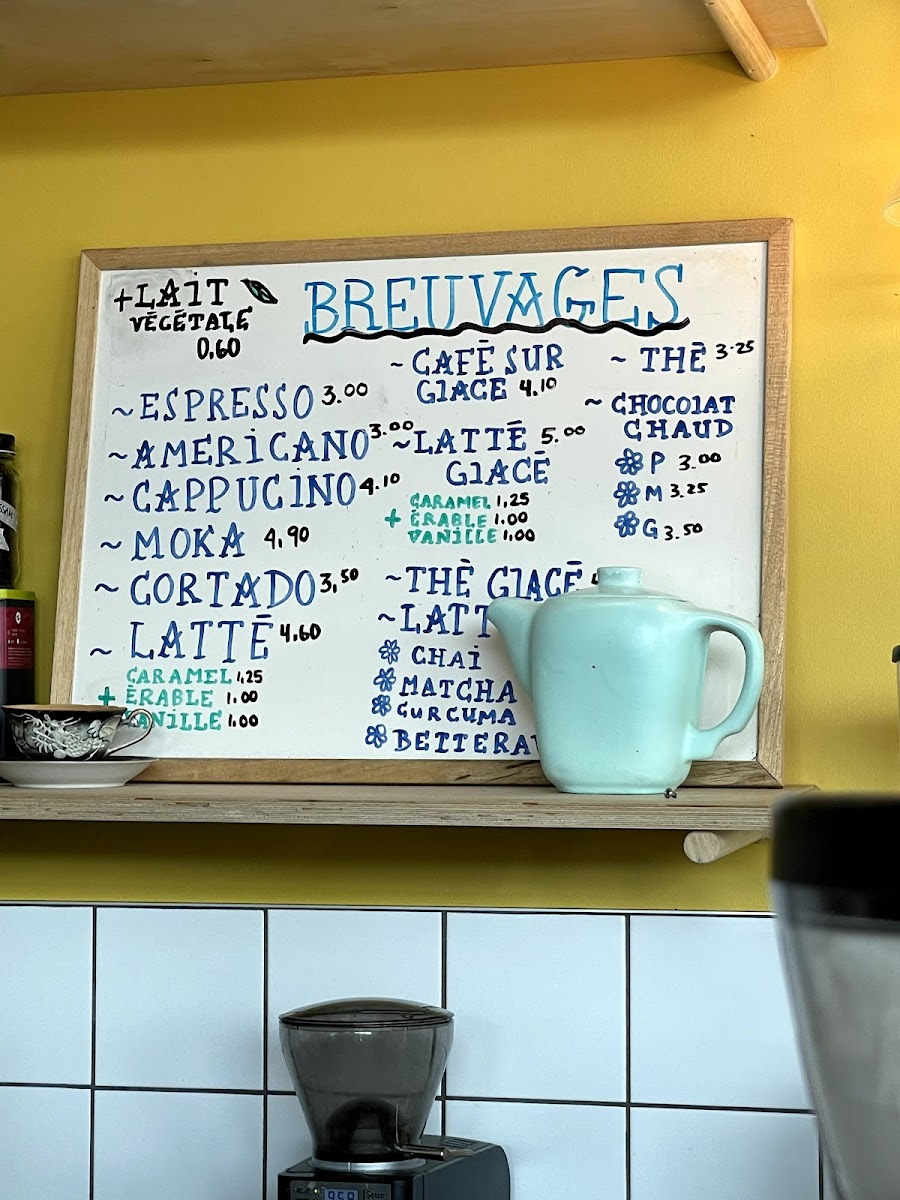 + LAIT
VÉGÉTALE
0.60
BREUVAGES
~ ESPRESSO 3.00
~ AMERICANO 3.00
~ CAPPUCINO 4.10
~ MOKA 4.90
~ CORTADO 3,50
~ LATTÉ 4.60
CARAMEL 1,25
+ ÉRABLE 1.00
VANILLE 1.00
~ CAFÉ SUR
GLACE 4.10
~ LATTÉ 5.00
GLACÉ
CARAMEL 1,25
+ ÉRABLE 1.00
VANILLE 1.00
~ THÉ GLACÉ
~ LATT
CHAÏ
MATCHA
CURCUMA
BETTERAV
~ THÉ 3.25
~ CHOCOLAT
CHAUD
P 3.00
M 3.25
G 3.50